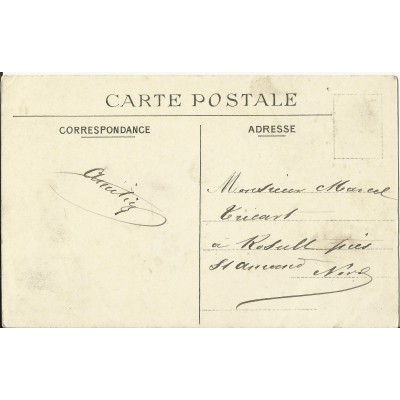 CARTE POSTALE
CORRESPONDANCE
ADRESSE
Amitié
Monsieur Marcel
Tricart
à Rosult près
St Amand Nord